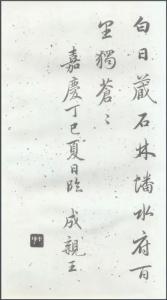 白日藏石林墦水府百
里獨蒼〻
嘉慶丁巳夏日臨
成親王